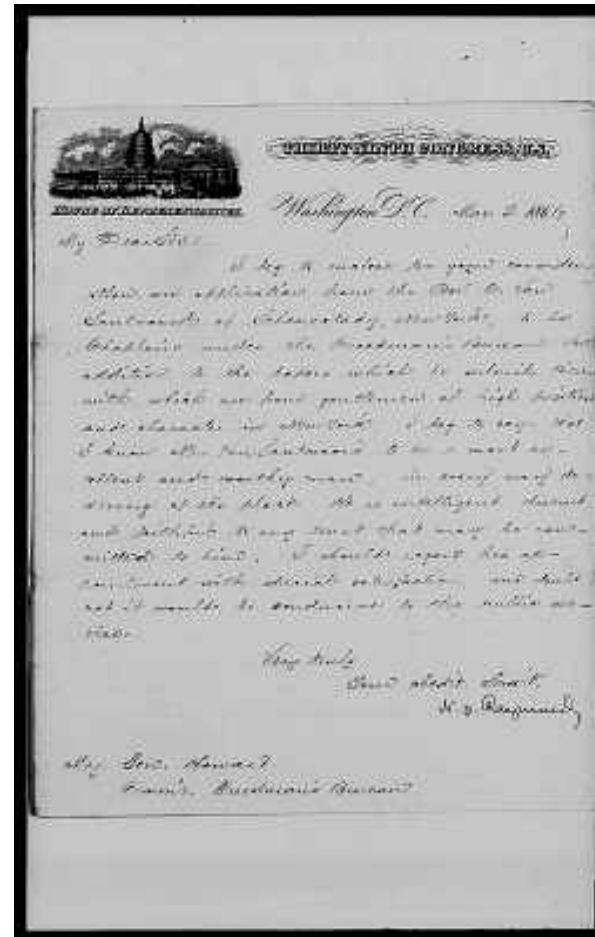 THIRTY NINTH CONGRESS, U.S.
HOUSE OF REPRESENTATIVES.
Washington D.C. Mar 2 1867
My Dear Sir:
I beg to enclose for your considera-
tion an application from the Rev. C. Van
Santvoord of Schenectady, New York, to be
Chaplain under the Freedmen's Bureau. In
addition to the papers which he submits
with which are from gentlemen of high position
and character in New York I beg to say that
I know Mr. Van Santvoord to be a most ex-
cellent and worthy man, in every way de-
serving of the place. He is intelligent
and faithful to any trust that may be com-
mitted to him. I should regard his ap-
pointment with satisfaction, and
it would be conducive to the public ser-
vice.
Very truly
Your obedt. Servt.
H. J. Raymond
Maj. Gen. Howard
Freedmen's Bureau